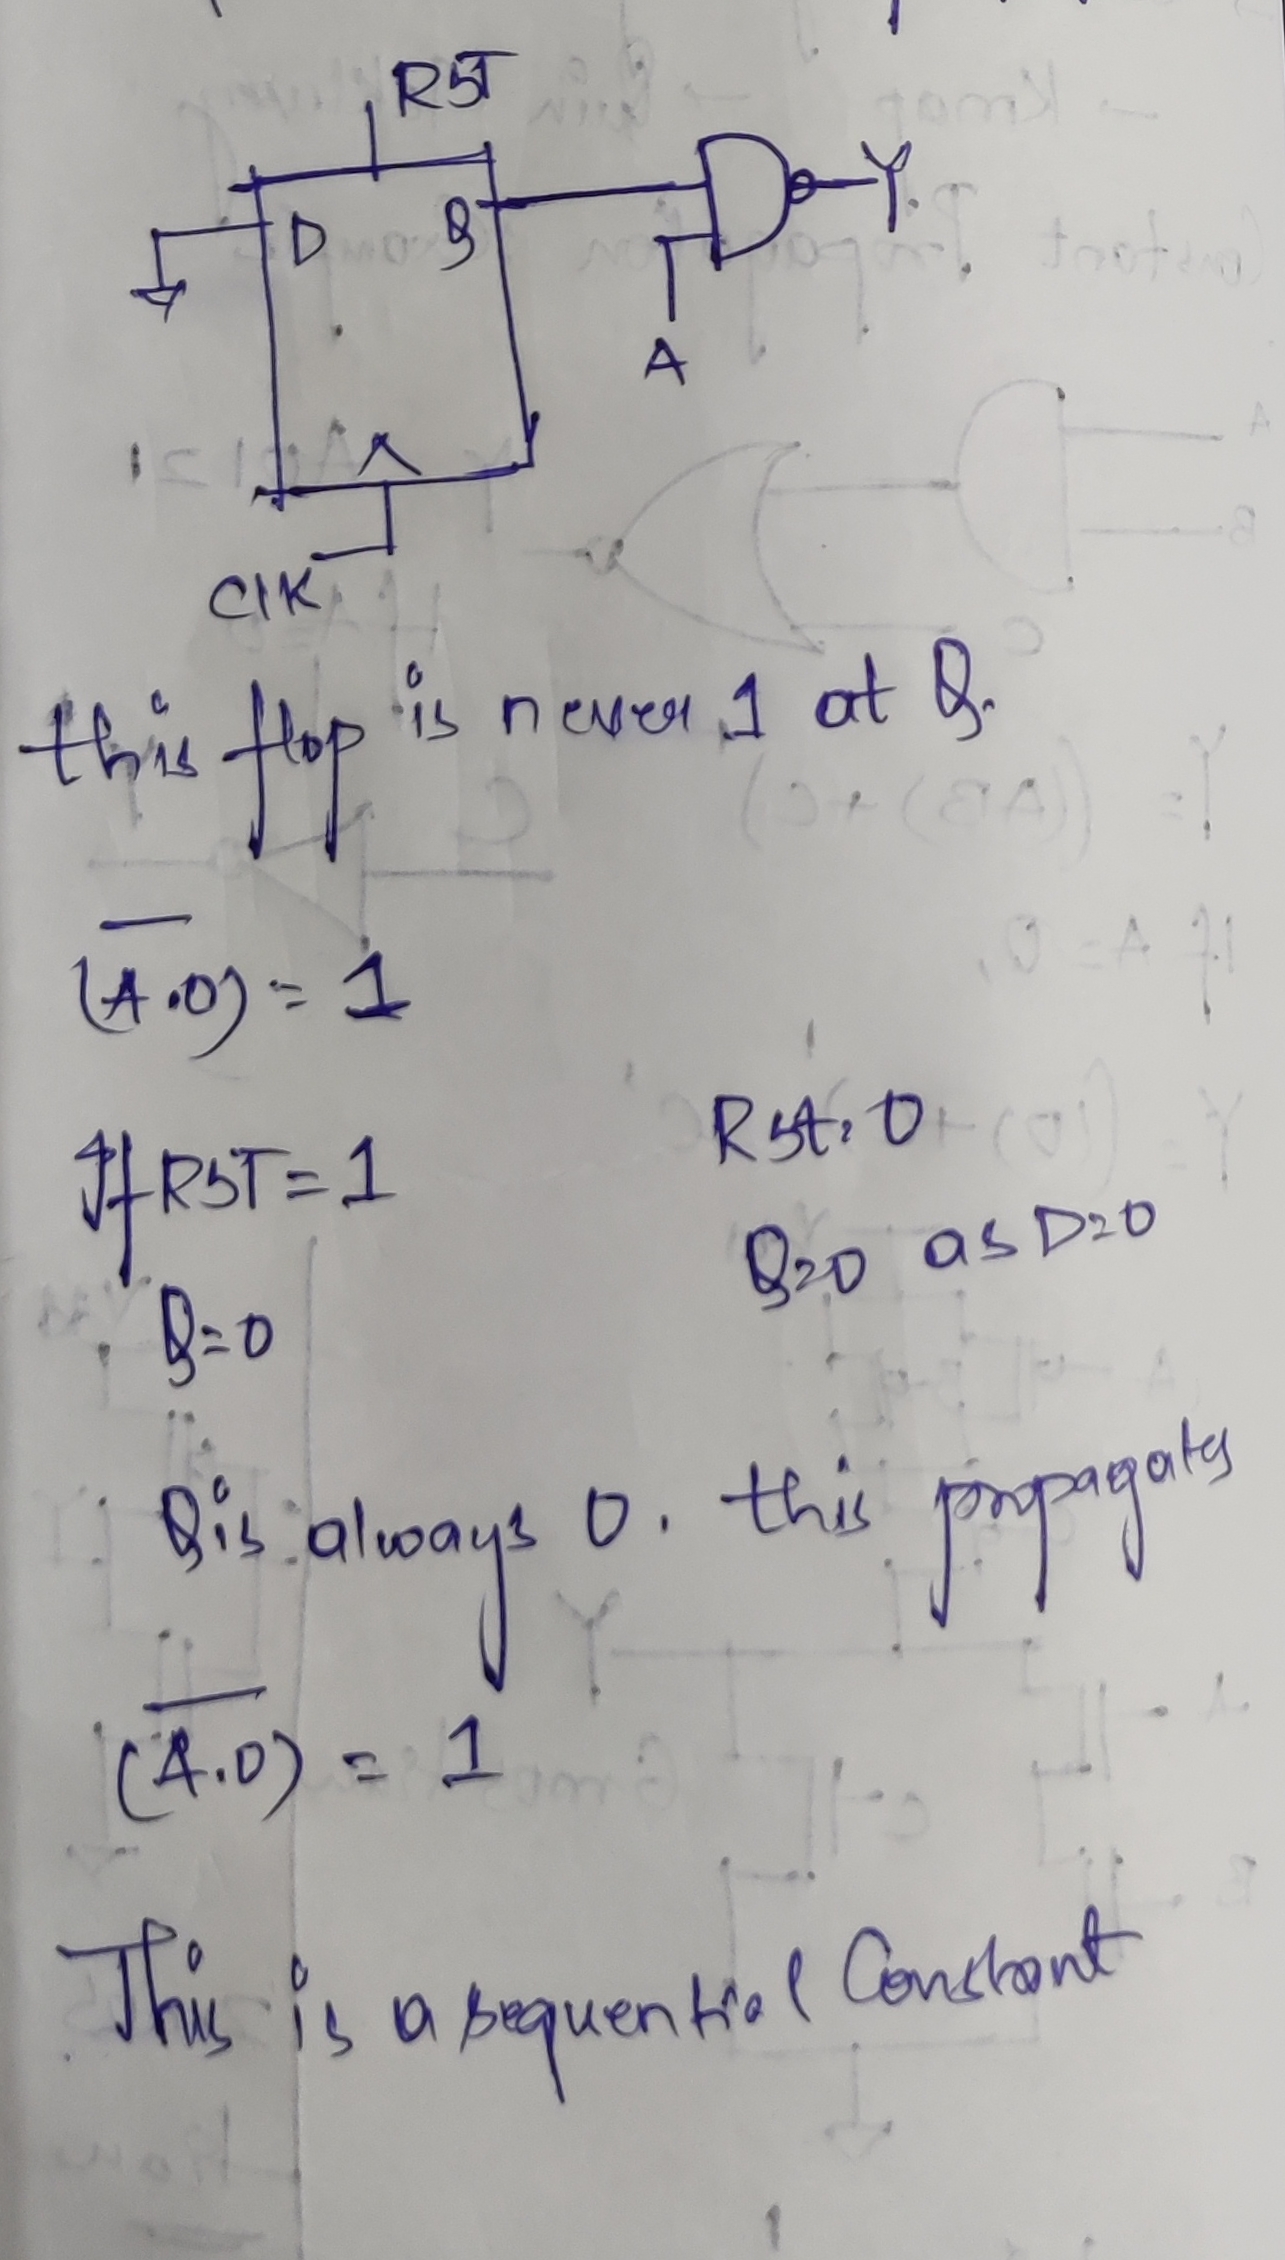 RST
D Q
Y
A
CLK
this flop is never 1 at Q.
(A.0) = 1
If RST = 1
Rst = 0
Q=0
Q=0 as D=0
Q is always 0. this propagates
(A.0) = 1
This is a sequential Constant